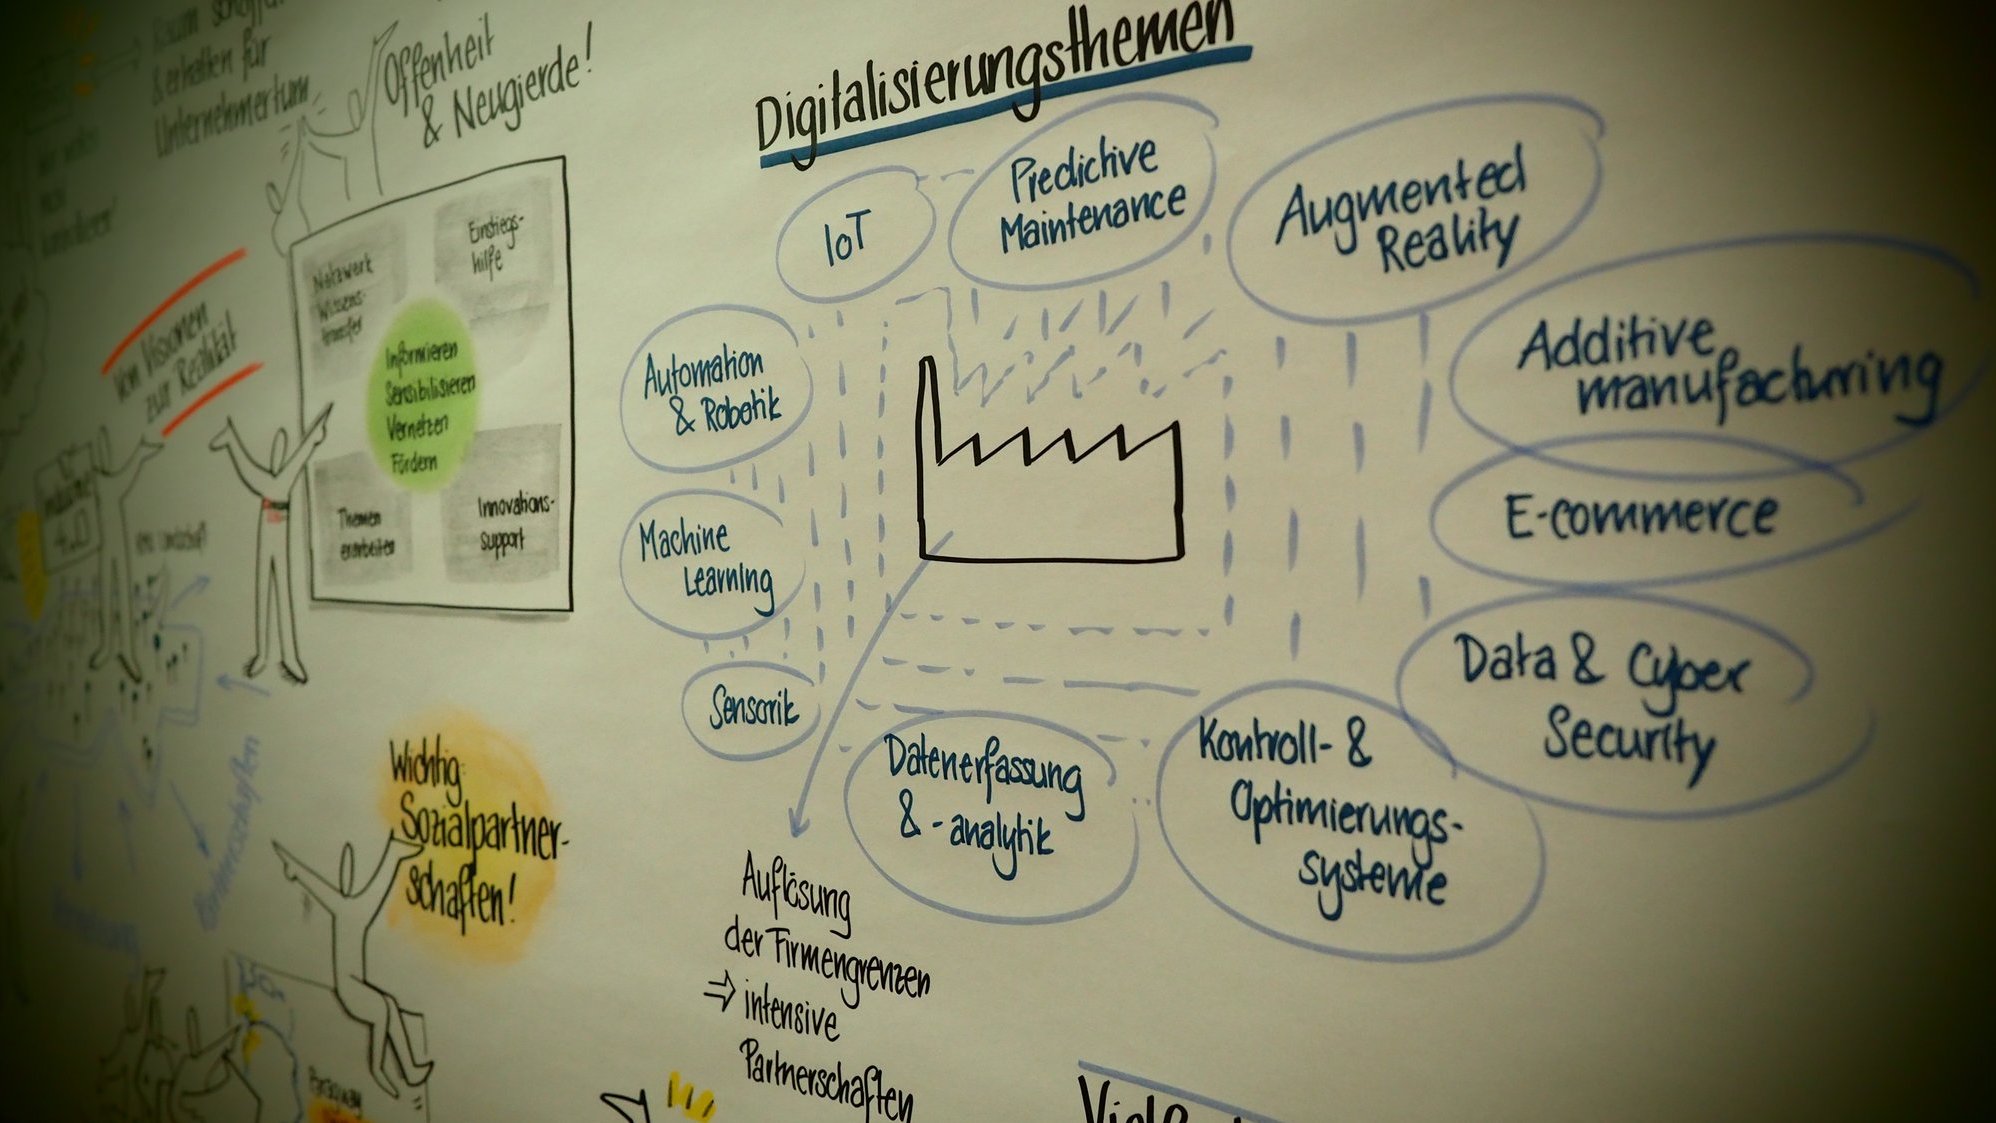 & erhalten für
Unternehmertum
Offenheit
& Neugierde!
Von Visionen
zur Realität
Netzwerk
Wissens-
transfer
Einstiegs-
hilfe
Informieren
Sensibilisieren
Vernetzen
Fördern
Themen
erarbeiten
Innovations-
support
Industrie
4.0
Wichtig:
Sozialpartner-
schaften!
Digitalisierungsthemen
IoT
Predictive
Maintenance
Augmented
Reality
Additive
manufacturing
E-commerce
Data & Cyber
Security
Kontroll- &
Optimierungs-
systeme
Datenerfassung
& -analytik
Sensorik
Machine
Learning
Automation
& Robotik
Auflösung
der Firmengrenzen
⇒ intensive
Partnerschaften